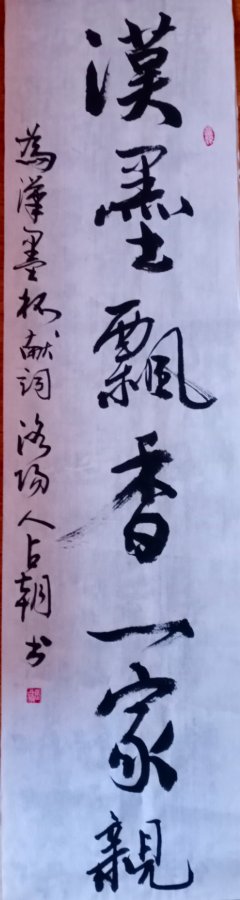 漢墨飄香一家親
為漢墨杯献詞洛陽人占朝书